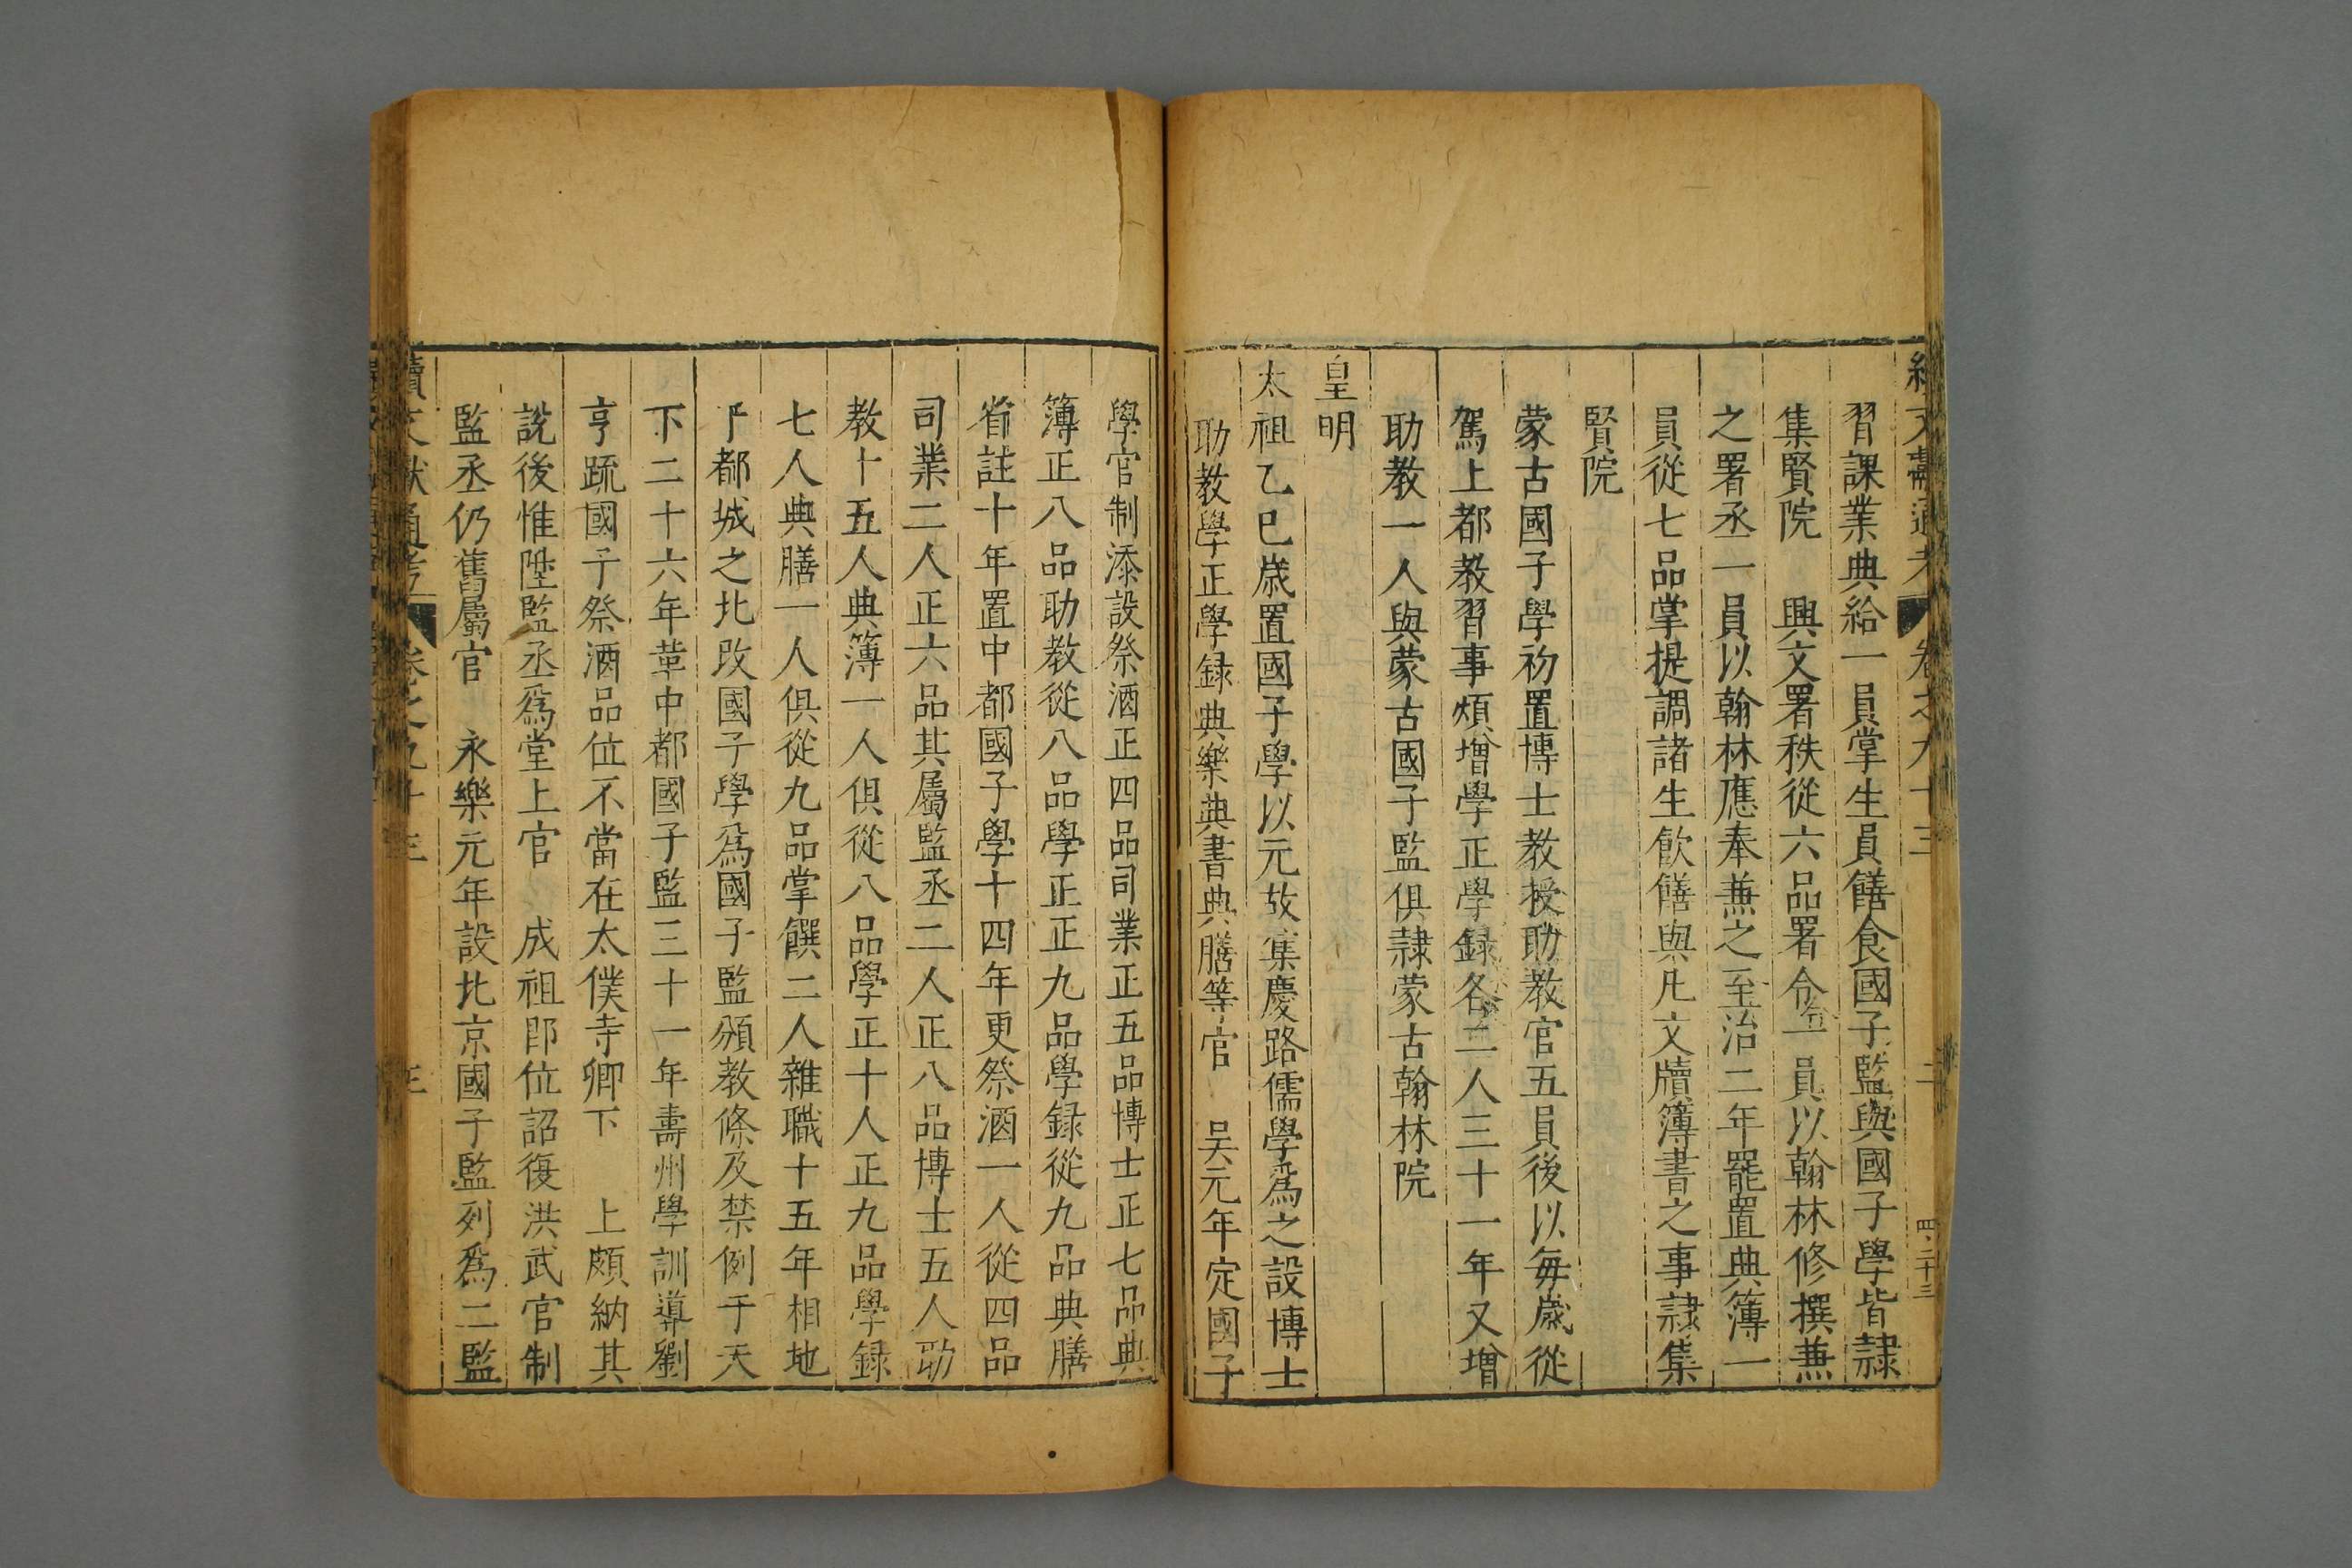 續文獻通考 卷之九十三 二 四二十三
習課業典給一員掌生員饍食國子監與國子學皆隷
集賢院 興文署秩從六品署令一員以翰林修撰兼
之署丞一員以翰林應奉兼之至治二年罷置典簿一
員從七品掌提調諸生飲饍與凡文牘簿書之事隷集
賢院
蒙古國子學初置博士教授助教官五員後以每歲從
駕上都教習事煩增學正學録各二人三十一年又增
助教一人與蒙古國子監俱隷蒙古翰林院
皇明
太祖乙巳歲置國子學以元故集慶路儒學爲之設博士
助教學正學録典樂典書典膳等官 吴元年定國子
學官制添設祭酒正四品司業正五品博士正七品典
簿正八品助教從八品學正正九品學録從九品典膳
省註十年置中都國子學十四年更祭酒一人從四品
司業二人正六品其屬監丞二人正八品博士五人助
教十五人典簿一人俱從八品學正十人正九品學録
七人典膳一人俱從九品掌饌二人雜職十五年相地
于都城之北改國子學爲國子監頒教條及禁例于天
下二十六年革中都國子監三十一年壽州學訓導劉
亨疏國子祭酒品位不當在太僕寺卿下 上頗納其
說後惟陞監丞爲堂上官 成祖即位詔復洪武官制
監丞仍舊屬官 永樂元年設北京國子監列爲二監
續文獻通考 卷之九十三 三